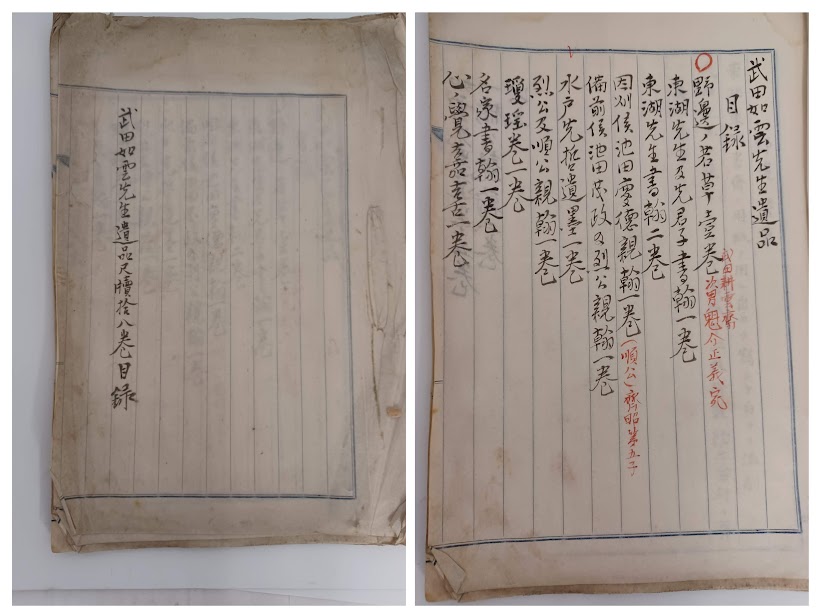 武田如雲先生遺品尺牘拾八巻目録
武田如雲先生遺品
目録
野邊ノ若草壹巻
武田耕雲斎
次男魁介正義宛
東湖先生及先君子書翰一巻
東湖先生書翰二巻
因州侯池田慶徳親翰一巻
(順公)齊昭第五子
備前侯池田茂政ノ烈公親翰一巻
水戸先哲遺墨一巻
烈公及順公親翰一巻
瓊瑶巻一巻
名家書翰一巻
心覺 一巻